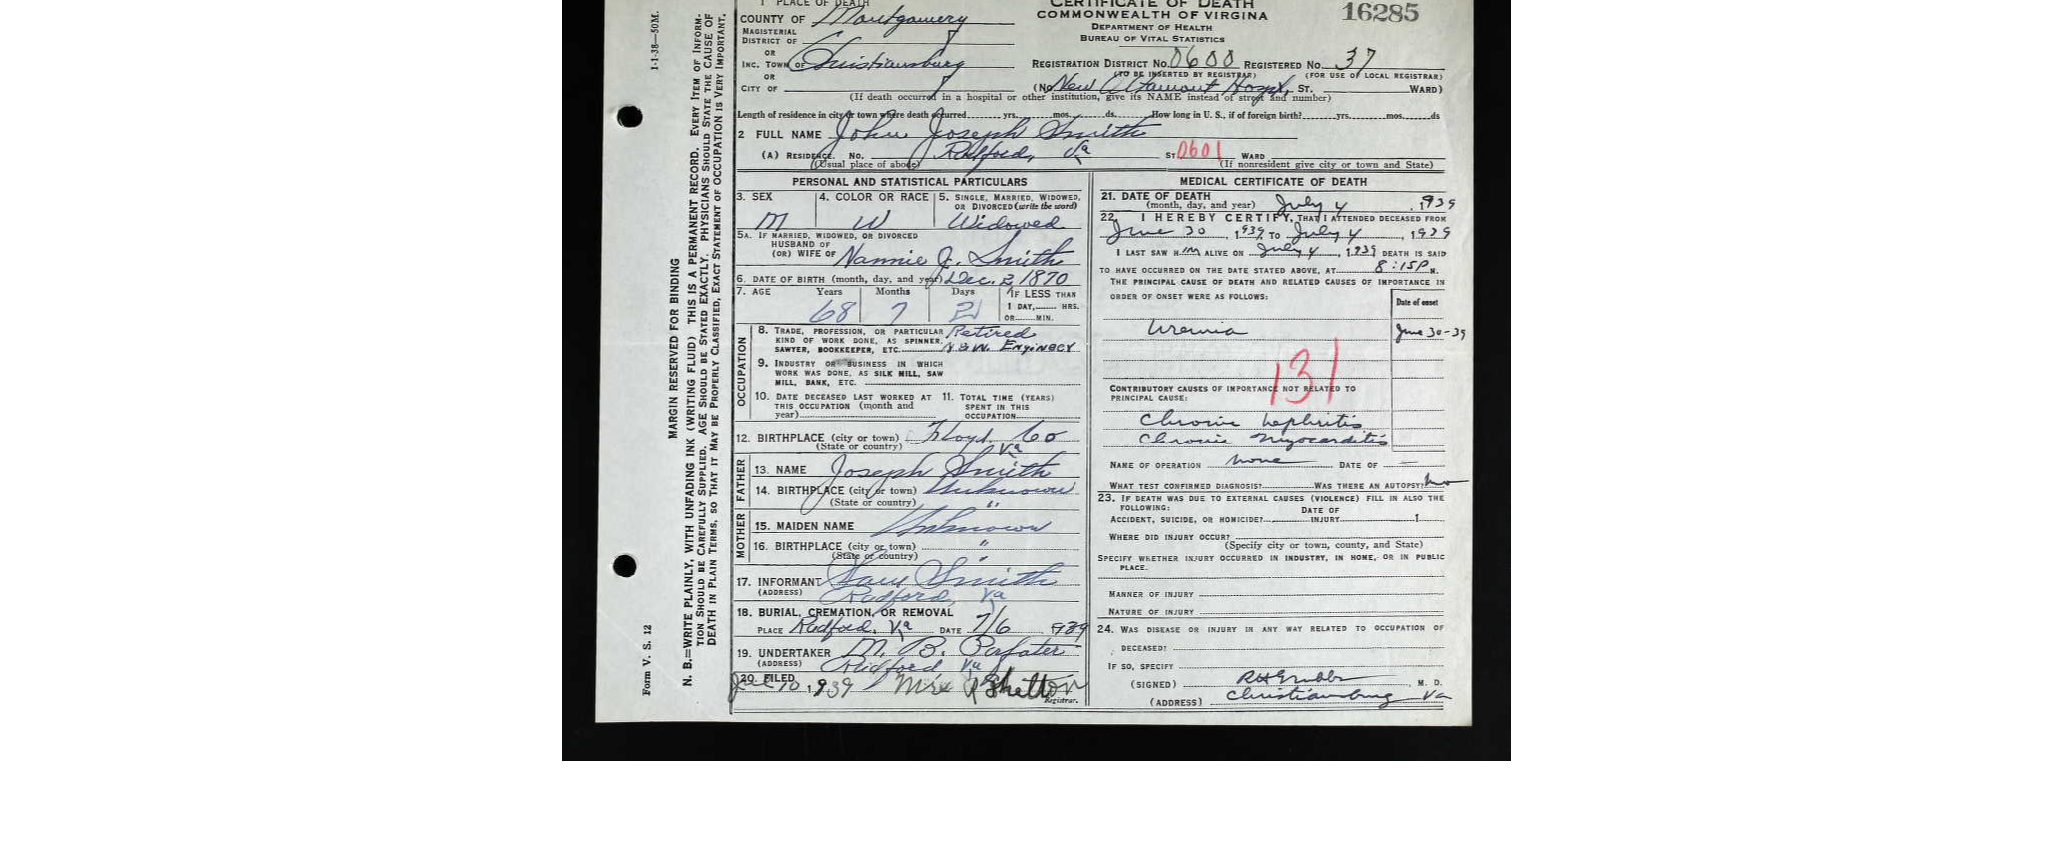 1 PLACE OF DEATH
COUNTY OF Montgomery
MAGISTERIAL DISTRICT OF
OR
INC. TOWN OF Christiansburg
OR
CITY OF
CERTIFICATE OF DEATH
COMMONWEALTH OF VIRGINIA
DEPARTMENT OF HEALTH
BUREAU OF VITAL STATISTICS
16285
REGISTRATION DISTRICT NO. 0600 REGISTERED NO. 37
(TO BE INSERTED BY REGISTRAR) (FOR USE OF LOCAL REGISTRAR)
(No New Altamont Hospt. ST. WARD)
(If death occurred in a hospital or other institution, give its NAME instead of street and number)
Length of residence in city or town where death occurred yrs. mos. ds. How long in U. S., if of foreign birth? yrs. mos. ds
2 FULL NAME John Joseph Smith
(A) RESIDENCE. No. Radford, Va ST. 0601 WARD
(Usual place of abode) (If nonresident give city or town and State)
PERSONAL AND STATISTICAL PARTICULARS
3. SEX M
4. COLOR OR RACE W
5. SINGLE, MARRIED, WIDOWED, OR DIVORCED (write the word) Widowed
5A. IF MARRIED, WIDOWED, OR DIVORCED
HUSBAND OF
(OR) WIFE OF Nannie J. Smith
6. DATE OF BIRTH (month, day, and year) Dec. 2, 1870
7. AGE Years 68 Months 7 Days 2 IF LESS THAN 1 DAY, HRS. OR MIN.
OCCUPATION
8. TRADE, PROFESSION, OR PARTICULAR Retired
KIND OF WORK DONE, AS SPINNER,
SAWYER, BOOKKEEPER, ETC. N & W. Engineer
9. INDUSTRY OR BUSINESS IN WHICH
WORK WAS DONE, AS SILK MILL, SAW
MILL, BANK, ETC.
10. DATE DECEASED LAST WORKED AT THIS OCCUPATION (month and year)
11. TOTAL TIME (YEARS) SPENT IN THIS OCCUPATION
12. BIRTHPLACE (city or town) Floyd Co
(State or country) Va
FATHER
13. NAME Joseph Smith
14. BIRTHPLACE (city or town) Unknown
(State or country) "
MOTHER
15. MAIDEN NAME Unknown
16. BIRTHPLACE (city or town) "
(State or country) "
17. INFORMANT Smith
(ADDRESS) Radford, Va
18. BURIAL, CREMATION, OR REMOVAL
PLACE Radford, Va DATE 7/6 1939
19. UNDERTAKER M. B.
(ADDRESS) Radford Va
20. FILED 10, 1939 Mrs Shelton
Registrar.
MEDICAL CERTIFICATE OF DEATH
21. DATE OF DEATH
(month, day, and year) July 4, 1939
22. I HEREBY CERTIFY, THAT I ATTENDED DECEASED FROM
June 30, 1939, TO July 4, 1939
I LAST SAW HIM ALIVE ON July 4, 1939 DEATH IS SAID
TO HAVE OCCURRED ON THE DATE STATED ABOVE, AT 8:15P M.
THE PRINCIPAL CAUSE OF DEATH AND RELATED CAUSES OF IMPORTANCE IN
ORDER OF ONSET WERE AS FOLLOWS:
Date of onset
Uremia June 30-39
131
CONTRIBUTORY CAUSES OF IMPORTANCE NOT RELATED TO
PRINCIPAL CAUSE:
Chronic nephritis
Chronic myocarditis
NAME OF OPERATION none DATE OF
WHAT TEST CONFIRMED DIAGNOSIS? WAS THERE AN AUTOPSY? no
23. IF DEATH WAS DUE TO EXTERNAL CAUSES (VIOLENCE) FILL IN ALSO THE
FOLLOWING:
ACCIDENT, SUICIDE, OR HOMICIDE? DATE OF INJURY 1
WHERE DID INJURY OCCUR?
(Specify city or town, county, and State)
SPECIFY WHETHER INJURY OCCURRED IN INDUSTRY, IN HOME, OR IN PUBLIC
PLACE.
MANNER OF INJURY
NATURE OF INJURY
24. WAS DISEASE OR INJURY IN ANY WAY RELATED TO OCCUPATION OF
DECEASED?
IF SO, SPECIFY
(SIGNED) RH Grubbs M. D.
(ADDRESS) Christiansburg Va
1-1-38—50M.
Form V. S. 12
MARGIN RESERVED FOR BINDING
N. B.—WRITE PLAINLY, WITH UNFADING INK (WRITING FLUID) THIS IS A PERMANENT RECORD. EVERY ITEM OF INFORM-
TION SHOULD BE CAREFULLY SUPPLIED. AGE SHOULD BE STATED EXACTLY. PHYSICIANS SHOULD STATE THE CAUSE OF
DEATH IN PLAIN TERMS, SO THAT IT MAY BE PROPERLY CLASSIFIED. EXACT STATEMENT OF OCCUPATION IS VERY IMPORTANT.